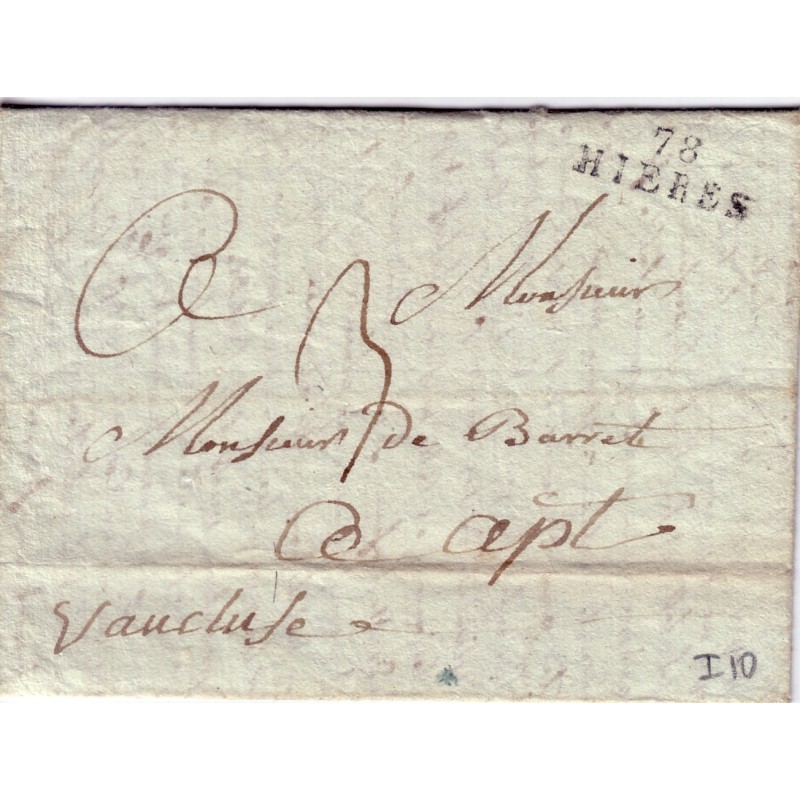 78
HIERES
A Monsieur
3
Monsieur de Barret
A apt
Vaucluse
I 10